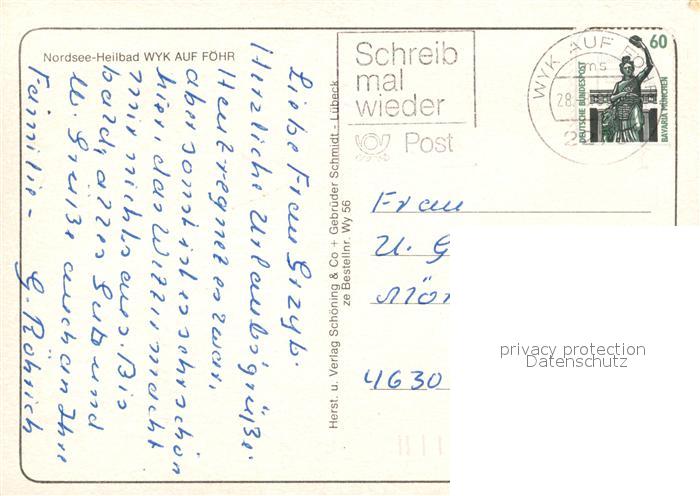 Nordsee-Heilbad WYK AUF FÖHR
Liebe Frau Grzyb.
Herzliche Urlaubsgrüße.
Heut regnet es zwar,
aber sonst ist es sehr schön
hier, das Wetter macht
mir nichts aus. Bis
bald, alles Gute und
u. Grüße auch an Ihre
Familie - G. Röhrich
Herst. u. Verlag Schöning & Co + Gebrüder Schmidt - Lübeck
ze Bestellnr. Wy 56
Schreib
mal
wieder
Post
WYK AUF FÖHR
ms
28.
60
DEUTSCHE BUNDESPOST
BAVARIA MÜNCHEN
Frau
U. G
4630
privacy protection
Datenschutz